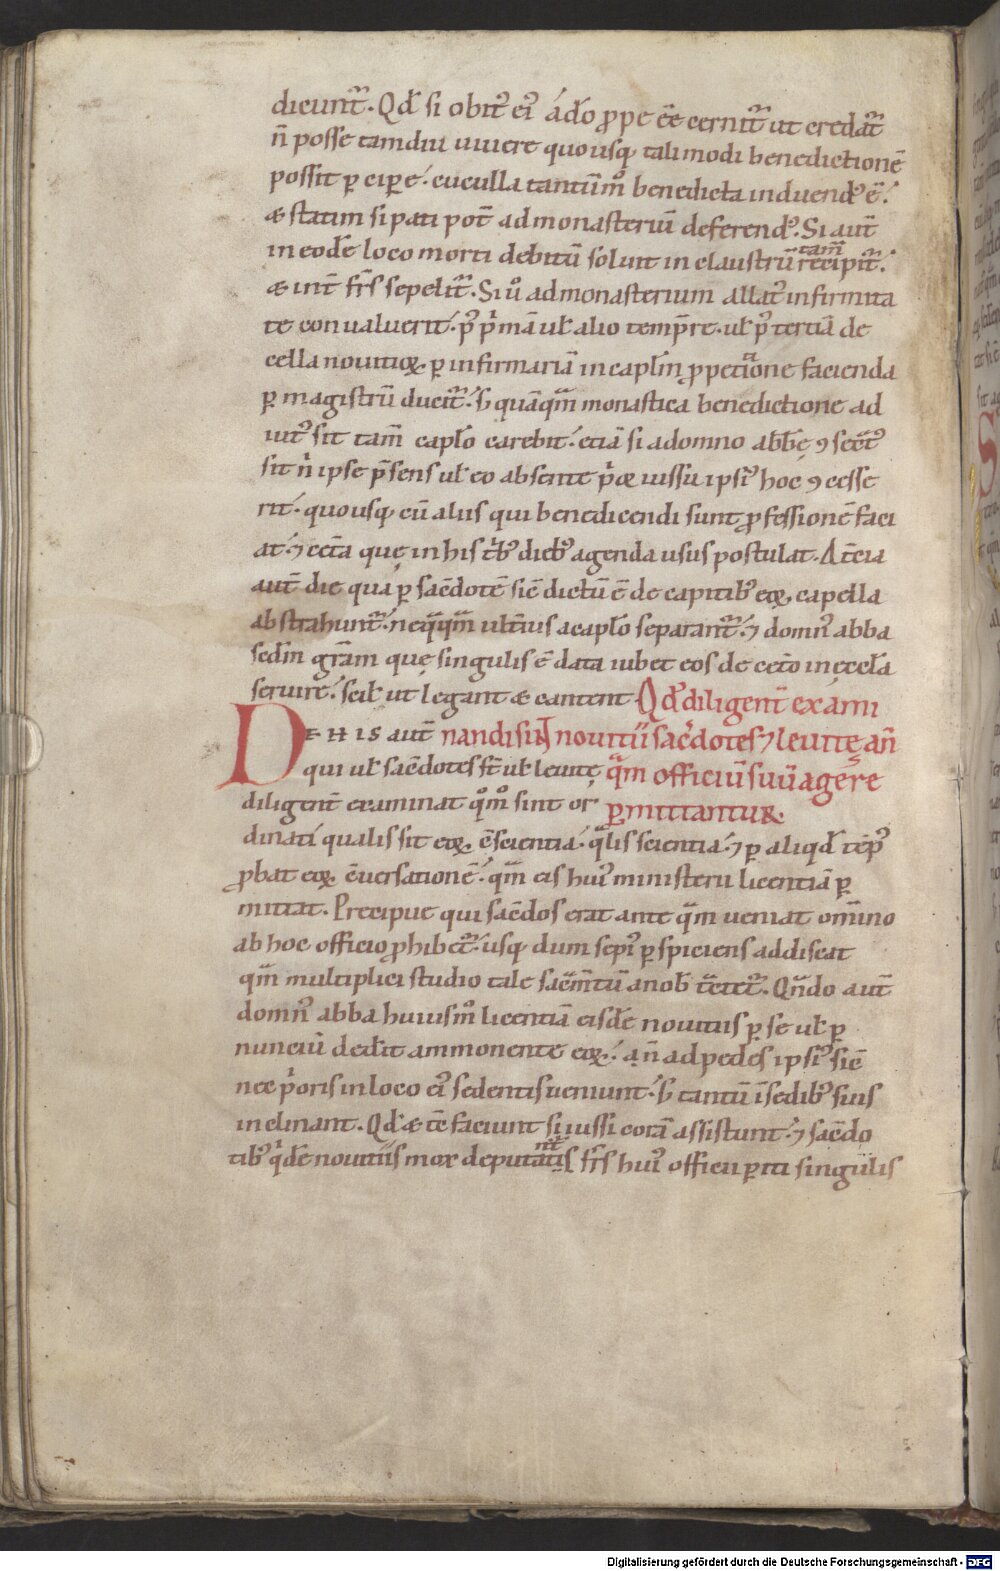 dicunt᷑. Qd̄ si obit᷒ ei᷒ ádꝉo ꝓpe eē cernit᷑ ut credat᷑
n̄ posse tamdiu uiuere quousq; talimodi benedictionē
possit ꝑciꝑe. cuculla tantūm̊ benedicta induend᷒ ē.
& statim si pati pot̄ ad monasteriū deferend᷒. Si aut̄
in eodē loco morti debitū soluit in claustrū tam̄ recipit᷑.
& int̄ fr̄s sepelit᷑. Si u̾o ad monasterium allat᷒ infirmita
te conualuerit. p᷒ p̾mā uꝉ alio temp̄re. uꝉ p᷒ tertiā de
cella nouitioꝝ. ꝑ infirmariā in capłm ꝓ petitione facienda
ꝑ magistrū ducit᷑. s; quāqᵃm monastica benedictione ad
iut᷒ sit tam̄ capło carebit. etiā si a domno abbē ꝯsecᵃt᷒
sit n̾ ipse p̄sens uꝉ eo absente p̾or iussu ipsi᷒ hoc ꝯcesse
rit. quousq; cū aliis qui benedicendi sunt ꝓfessionē faci
at. ⁊ cet̄a quę in his t̾b᷒ dieb᷒ agenda usus postulat. A t̄cia
aut̄ die qua ꝑ sac̄dotē sic̄ dictū ē de capitib᷒ eoꝝ capella
abstrahunt᷑. nequaqᵃm ult̄ius a capło separant᷑. ⁊ domn᷒ abba
scd̄m gr̄am quę singulis ē data iubet eos de cet̾o in ęccꝉa
seruire. sciꝉ ut legant & cantent. Qd̄ diligent̄ exami
De his aut̄ nandi sint nouitii sac̾dotes ⁊ leuitę an̄
qui uꝉ sac̄dotes st̄ uꝉ leuitę qᵃm officiū suū agere
diligent̄ examinat qm̊ sint or ꝑmittantur.
dinati qualis sit eoꝝ ꝯscientia. qᵃlis scientia. ⁊ ꝑ aliqd̄ tēp᷒
ꝓbat eoꝝ ꝯuersationē. qᵃm eis hui᷒ ministerii licentiā ꝑ
mittat. Precipue qui sac̄dos erat ante qᵃm ueniat om̄ino
ab hoc officio ꝓhibet᷑. usq; dum sepi᷒ ꝑspiciens addiscat
qᵃm multiplici studio tale sacᵃm̄tū a nob᷒ tᵃctet᷑. Qn̄do aut̄
domn᷒ abba huiusm̊ licentiā eisdē nouitiis ꝑ se uꝉ ꝑ
nunciū dederit ammonente eoꝝ. an̄ ad pedes ipsi᷒ sic̄
nec p̾oris in loco ei᷒ sedentis ueniunt. s; tantū ī sedib᷒ suis
inclinant. Qd̄ & tc̄ faciunt si iussi corā assistunt. ⁊ sac̄do
tib᷒ q̾dē nouitiis mox deputant᷑ fr̄s hui᷒ officii ꝑiti singulis
Digitalisierung gefördert durch die Deutsche Forschungsgemeinschaft - DFG